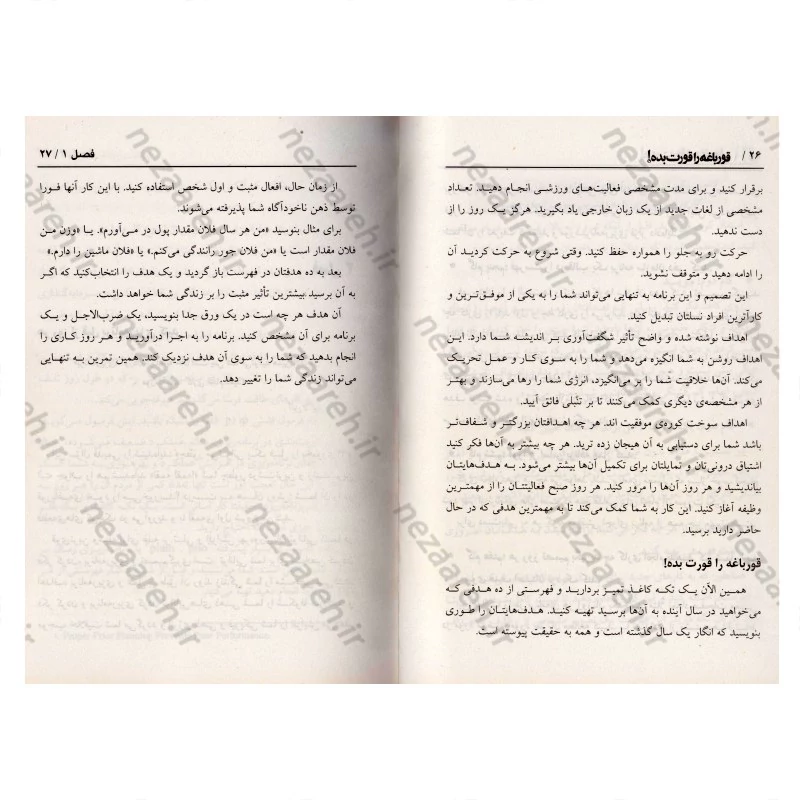 ۲۶ / قورباغه را قورت بده!
برقرار کنید و برای مدت مشخصی فعالیت‌های ورزشی انجام دهید. تعداد
مشخصی از لغات جدید از یک زبان خارجی یاد بگیرید. هرگز یک روز را از
دست ندهید.
حرکت رو به جلو را همواره حفظ کنید. وقتی شروع به حرکت کردید آن
را ادامه دهید و متوقف نشوید.
این تصمیم و این برنامه به تنهایی می‌تواند شما را به یکی از موفق‌ترین و
کارآترین افراد نسلتان تبدیل کنید.
اهداف نوشته شده و واضح تأثیر شگفت‌آوری بر اندیشه شما دارد. این
اهداف روشن به شما انگیزه می‌دهد و شما را به سوی کار و عمل تحریک
می‌کند. آن‌ها خلاقیت شما را بر می‌انگیزد، انرژی شما را رها می‌سازند و بهتر
از هر مشخصه‌ی دیگری کمک می‌کنند تا بر تنبلی فائق آیید.
اهداف سوخت کوره‌ی موفقیت اند. هر چه اهدافتان بزرگتر و شفاف‌تر
باشد شما برای دستیابی به آن هیجان زده ترید. هر چه بیشتر به آن‌ها فکر کنید
اشتیاق درونی‌تان و تمایلتان برای تکمیل آن‌ها بیشتر می‌شود. به هدف‌هایتان
بیاندیشید و هر روز آن‌ها را مرور کنید. هر روز صبح فعالیتتان را از مهمترین
وظیفه آغاز کنید. این کار به شما کمک می‌کند تا به مهمترین هدفی که در حال
حاضر دارید برسید.
قورباغه را قورت بده!
همین الآن یک تکه کاغذ تمیز بردارید و فهرستی از ده هدفی که
می‌خواهید در سال آینده به آن‌ها برسید تهیه کنید. هدف‌هایتان را طوری
بنویسید که انگار یک سال گذشته است و همه به حقیقت پیوسته است.
فصل ۱ / ۲۷
از زمان حال، افعال مثبت و اول شخص استفاده کنید. با این کار آنها فورا
توسط ذهن ناخودآگاه شما پذیرفته می‌شوند.
برای مثال بنویسید «من هر سال فلان مقدار پول در می‌آورم». یا «وزن من
فلان مقدار است یا «من فلان جور رانندگی می‌کنم.» یا «فلان ماشین را دارم.»
بعد به ده هدفتان در فهرست باز گردید و یک هدف را انتخاب‌کنید که اگر
به آن برسید بیشترین تأثیر مثبت را بر زندگی شما خواهد داشت.
آن هدف هر چه است در یک ورق جدا بنویسید، یک ضرب‌الاجل و یک
برنامه برای آن مشخص کنید. برنامه را به اجرا درآورید و هر روز کاری را
انجام بدهید که شما را به سوی آن هدف نزدیک کند. همین تمرین به تنهایی
می‌تواند زندگی شما را تغییر دهد.
nezaareh.ir
nezaareh.ir
nezaareh.ir
nezaareh.ir
nezaareh.ir
nezaareh.ir
nezaareh.ir
nezaareh.ir
nezaareh.ir
nezaareh.ir
nezaareh.ir
nezaareh.ir